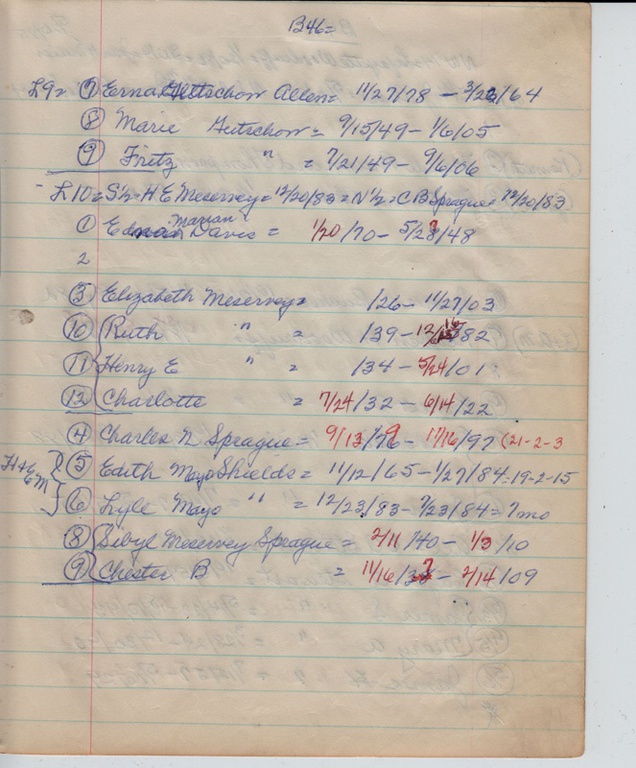 B46=
L9= (7) Erna Gutschow Allen= 11/27/78 - 3/26/64
(8) Marie Gutschow= 9/15/49- 1/6/05
(9) Fritz " = 7/21/49- 9/6/06
L10=S½=H E Meservey=12/20/83=N½=C B Sprague=12/20/83
(1) Marian Davis = 1/20/70- 5/28?/48
2
(3) Elizabeth Meservey= /26- 11/27/03
(10) Ruth " = /39-12/ /82
(11) Henry E " = /34- 5/24/01?
(12) Charlotte = 7/24/32- 6/14/22
(4) Charles N Sprague= 9/13/76- 11/16/97 (21-2-3
(5) Edith Mayo Shields= 11/12/65-1/27/84=19-2-15
(6) Lyle Mayo " = 12/23/83- 7/23/84=7mo
(8) Sibyl Meservey Sprague= 2/11/40- 1/3/10
(9) Chester B = 11/16/38?- 2/14/09